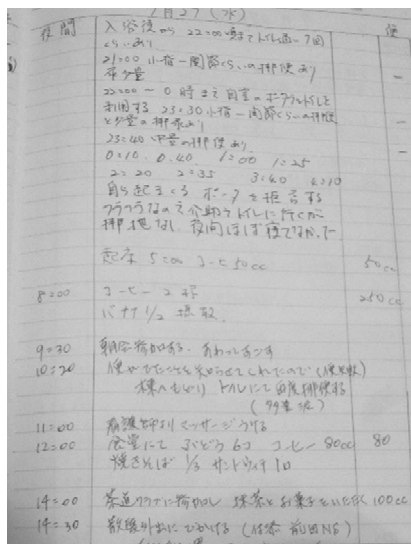 1月27(水)
夜間 便
入浴後から 22:00頃までトイレ通い 7回
くらいあり
21:00 小指一関節くらいの排便あり
尿少量 −
22:00〜0時まで自室のポータブルトイレを
利用する 23:30 小指一関節くらいの排便
と少量の排尿あり −
23:40 中量の排便あり −
0:10. 0:40 1:00 1:25
2:20 2:35 3:40 4:10
自ら起きくる ポータを拒否する
フラフラなので介助でトイレに行くが
排泄なし 夜間ほぼ寝てなかった
起床 5:00 コーヒー50cc 50cc
8:00 コーヒー2杯 250cc
バナナ1/2 摂取
9:30 朝会参加する
10:20
棟へもどり トイレにて 排便する
(多量)
11:00 看護師よりマッサージうける
12:00 食堂にて ぶどう6コ コーヒー80cc 80
焼きそば1/3 サンドウィチ1コ
14:00 茶道クラブに参加し 抹茶とお菓子をいただく 100cc
14:30 散髪外出にでかける (付添 前田NS)